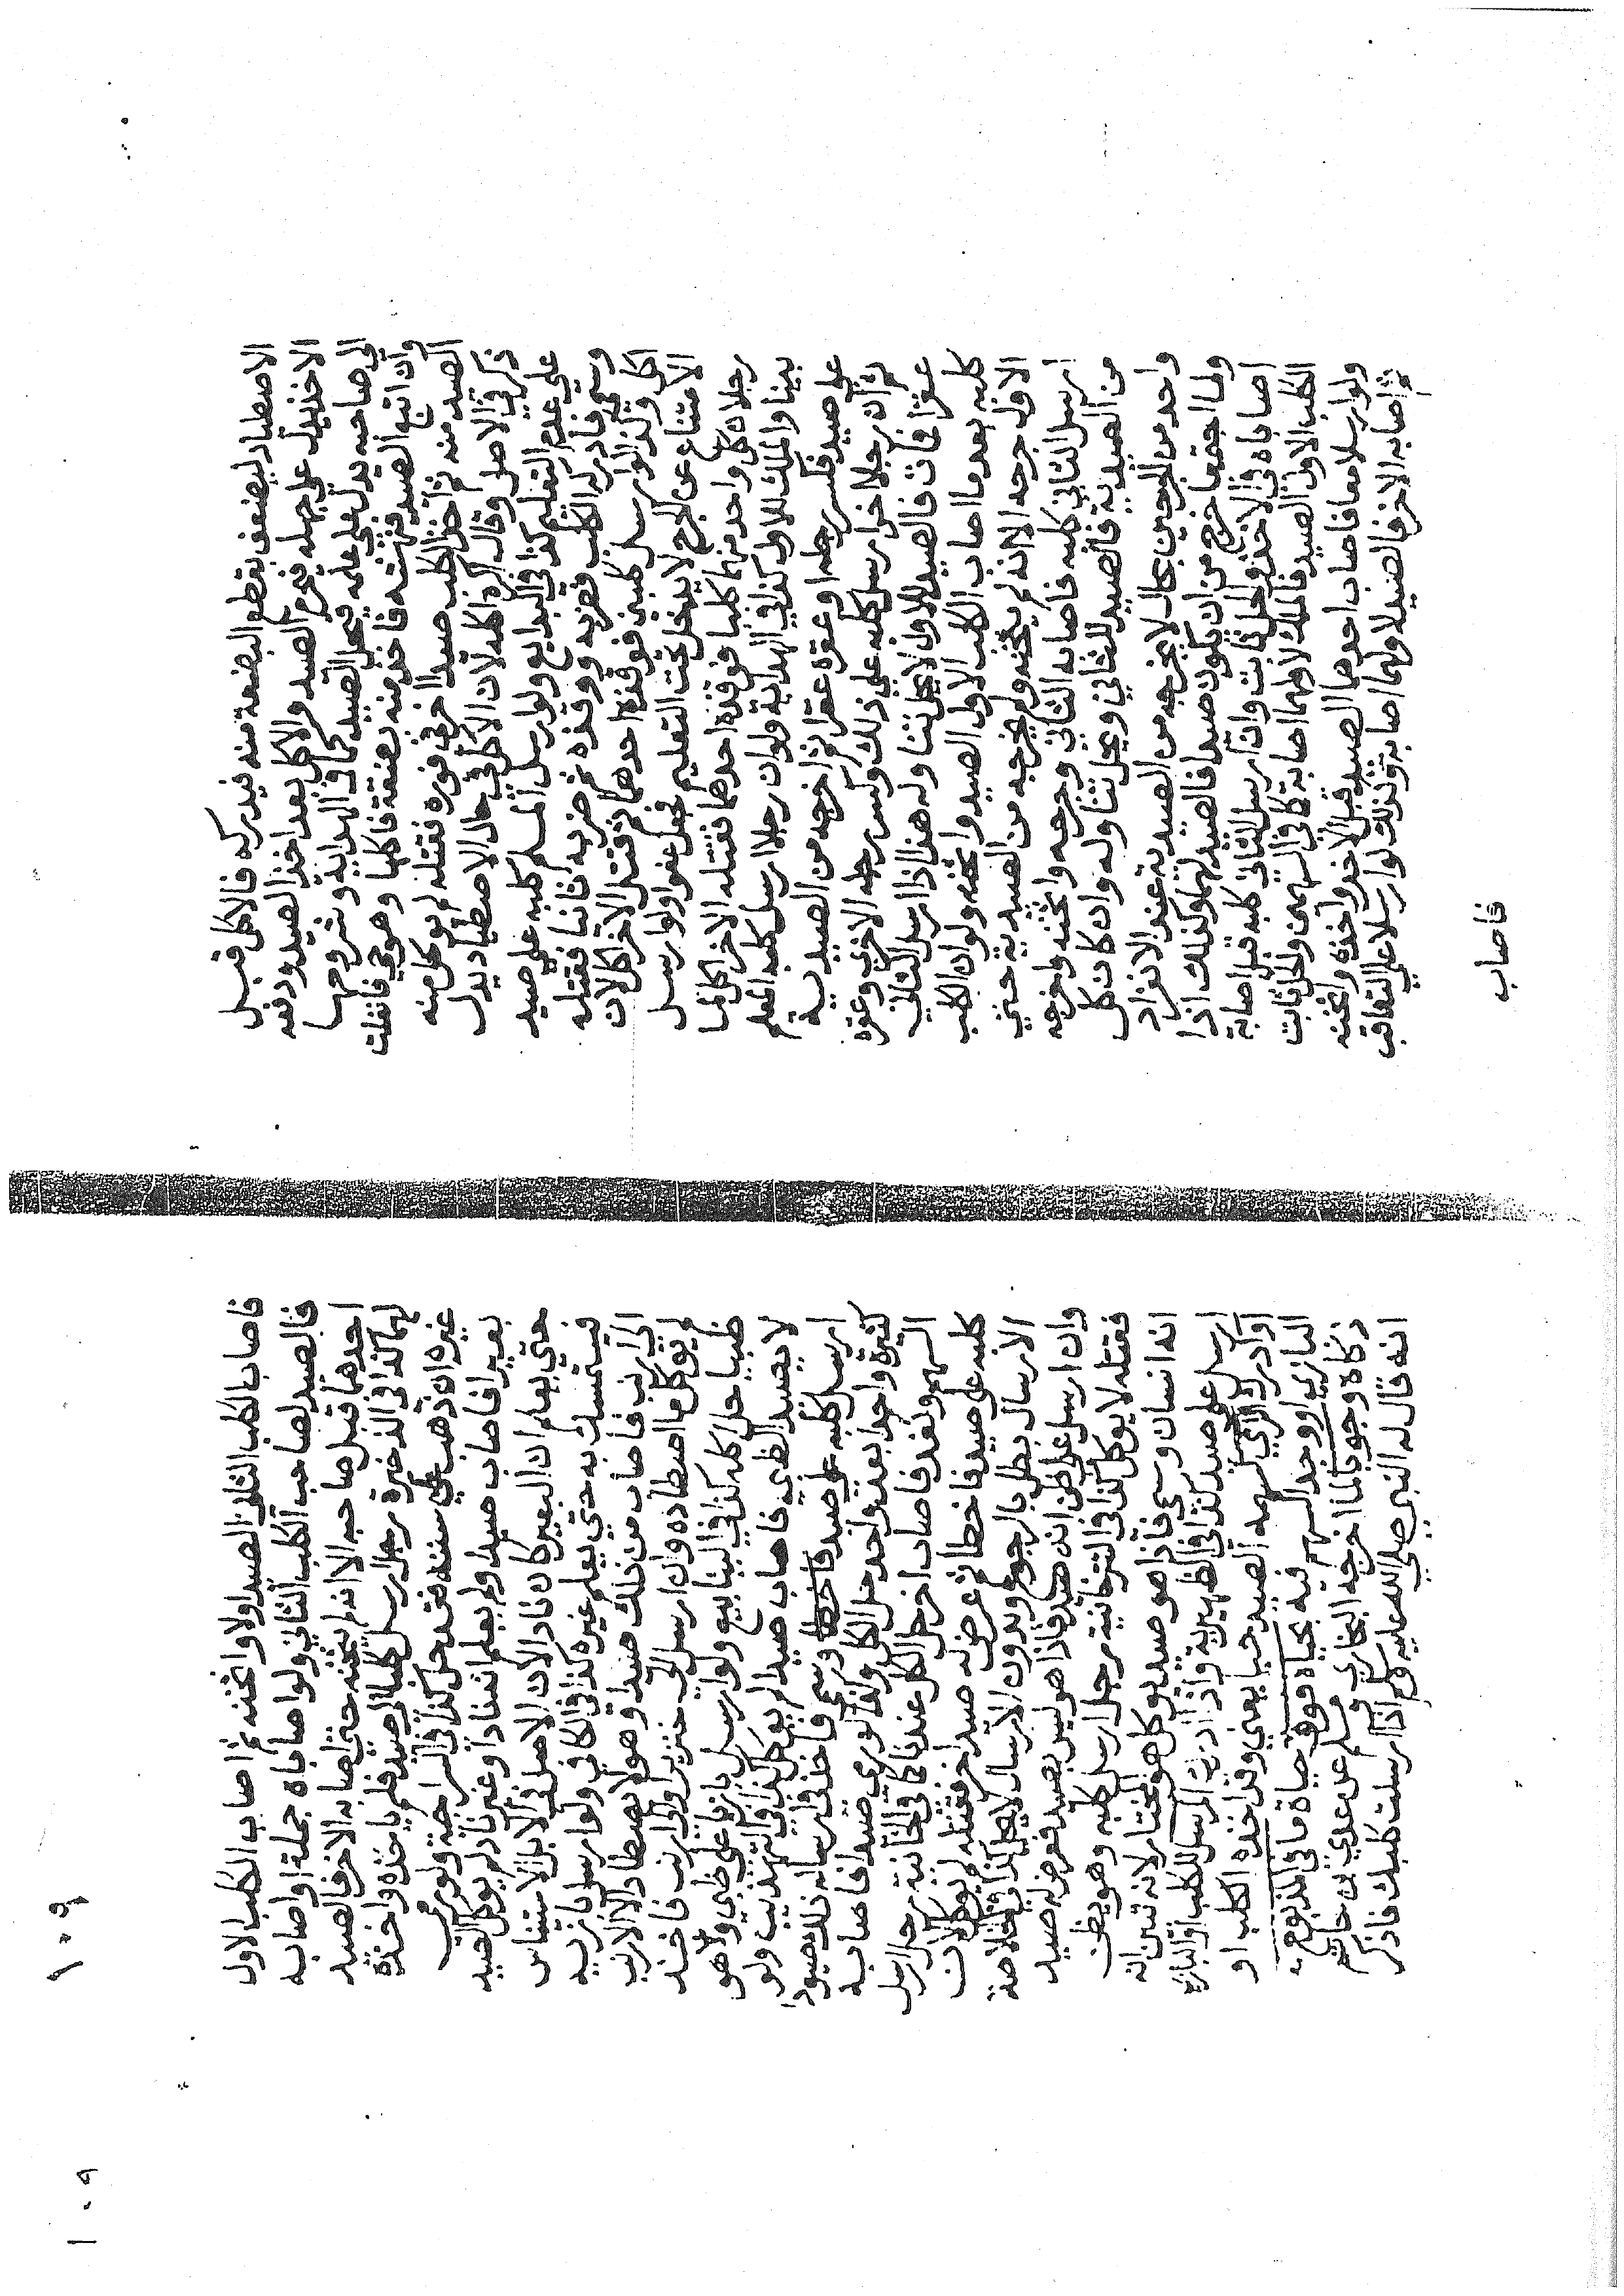 الاصطياد ليضعف بقطع البضعة منه فيدركه فالاكل قبل
الاخذ يدل علي جهله فيحرم الصيد والاكل بعد اخذ الصيد ودفعه
الي صاحبه يدل علي علمه فيحل الصيد كما في الهداية وشروحها
وان اتبع الصيد فنهشه فاخذ منه بضعة فاكلها وهو حي فانفلت
الصيد منه ثم اخذ الكلب صيدا اخر في فوره فقتله لم يوكل منه
ذكر في الاصل وقال اكره اكله لان الاكل في حال الاصطياد يدل
علي عدم التعليم كذا في البدايع ولو ارسل المسلم كلبه علي صيد
وسمي فادركه الكلب فضربه ووقذه ثم ضربه ثانيا فقتله
اكل وكذا لو ارسل كلبين فوقذه احدهما ثم قتل الاخر اكل لان
الامتناع عن الجرح لا يدخل تحت التعليم فجعل عفوا ولو ارسل
رجلان كل واحد منهما كلبا فوقذه احدهما فقتله الاخر اكل لما
بينا والملك للاول كذا في الهداية ولو ان رجلا ارسل كلبه المعلم
علي صيد فكسر رجله او عقره عقرا اخرجه من الصيدية
ثم ان رجلا اخر ارسل كلبه علي ذلك وكسر رجله الاخري وعقره
عقرا فمات فالصيد للاول لا يحل تناوله هذا اذا ارسل الثاني
كلبه بعد ما اصاب الكلب الاول الصيد واثخنه ولو ان الكلب
الاول جرحه الا انه لم يثخنه ولم يخرجه من الصيدية حتي
ارسل الثاني كلبه فاصابه الثاني وجرحه واثخنه واخرجه
من الصيدية فالصيد للثاني ويحل تناوله وان كان كل
واحد من الجرحين بحال لا يخرجه من الصيدية عند الانفراد
ولما اجتمعا خرج من ان يكون صيدا فالصيد لهما وكذلك اذا
اصاباه في الاخذ والحل ثابت وان ارسل الثاني كلبه قبل اصابة
الكلب الاول الصيد فالملك لاولهما اصابة كما في السهمين والحل ثابت
ولو ارسلا معا فاصاب احدهما الصيد قبل الاخر واخذه واثخنه
ثم اصابه الاخر فالصيد لاولهما اصابة وكذلك لو ارسلا علي التعاقب
فاصاب
١٠٩
فاصاب الكلب الثاني الصيد اولا واثخنه ثم اصاب الكلب الاول
فالصيد لصاحب الكلب الثاني ولو اصاباه جملة او اصابه
احدهما قبل صاحبه الا انه لم يثخنه حتي اصابه الاخر فالصيد
لهما كذا في الذخيرة رجل ارسل كلبا الي صيد فلم ياخذه واخذ
غيره ان ذهب علي سننه فقد حل كذا في السراجية ولو رمي
بعيرا فاصاب صيدا ولم يعلم انه ناد او غير ناد لم يوكل الصيد
حتي يعلم ان البعير كان ناد لان الاصل في الابل الاستئناس
فيتمسك به حتي يعلم غيره كذا في الكافي ولو ارسل بازيه
الي ارنب فاصاب من ذلك صيدا وهو لا يصطاد الا الارنب
لم يوكل ما اصطاده وان ارسل الي خنزير او الي ارنب فاخذ
ظبيا حل اكله كذا في الينابيع ولو ارسل بازيا علي ظبي وهو
لا يصيد الظبي فاصاب صيدا لم يوكل كذا في التهذيب ولو
ارسل كلبه علي صيد فاخطا وسمي فاخذ في ارساله ذلك صيودا
كثيرة واحدا بعد واحد حل الكل وكذا لو رمي صيدا فاصابه
السهم ونفذ فاصاب اخر حل الكل عندنا كما في الخانية رجل ارسل
كلبه علي صيد فاخطا ثم عرض له صيد اخر فقتله لم يوكل لان
الارسال بطل بالرجوع وبدون الارسال لا يحل كذا في الخلاصة
وان ارسل علي ظن انه صيد فاذا هو ليس بصيد فعرض له صيد
فقتله لا يوكل كذا في التترخانية رجل ارسل كلبه وهو يظن
انه انسان وسمي فاذا هو صيد يوكل هو المختار لانه تبين انه
ارسل علي صيد كذا في الظهيرية واذا ادرك المرسل للكلب او البازي
او ادرك الرامي سهمه الصيد حيا يعني وقد اخذه الكلب او
البازي او وجد السهم فيه بحياة فوق حياة ما في المذبوح
ذكاه وجوبا لما اخرجه البخاري ومسلم عن عدي بن حاتم
انه قال له النبي صلي الله عليه وسلم اذا ارسلت كلبك فاذكر
١٠٩